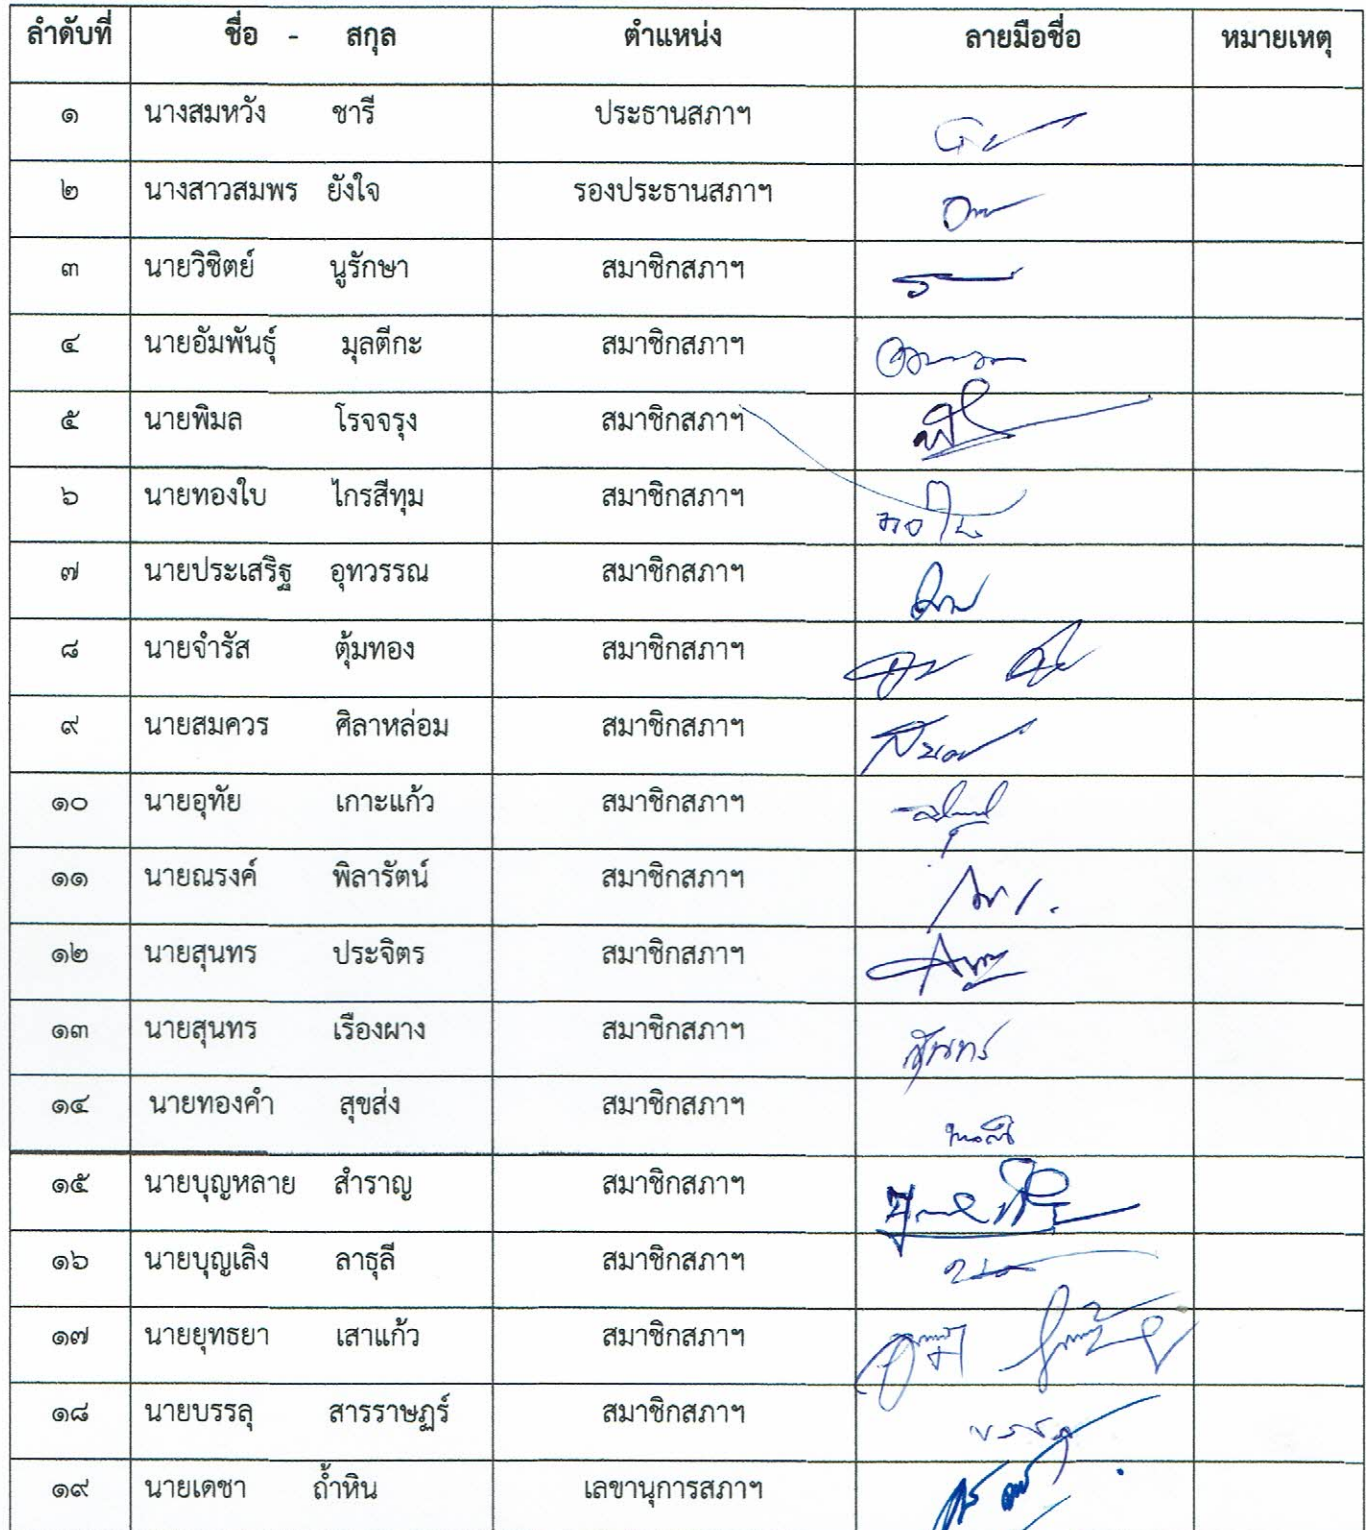 ลำดับที่ ชื่อ - สกุล ตำแหน่ง ลายมือชื่อ หมายเหตุ
๑ นางสมหวัง ชารี ประธานสภาฯ
๒ นางสาวสมพร ยังใจ รองประธานสภาฯ
๓ นายวิชิตย์ นูรักษา สมาชิกสภาฯ
๔ นายอัมพันธุ์ มุลตีกะ สมาชิกสภาฯ
๕ นายพิมล โรจจรุง สมาชิกสภาฯ
๖ นายทองใบ ไกรสีทุม สมาชิกสภาฯ
๗ นายประเสริฐ อุทวรรณ สมาชิกสภาฯ
๘ นายจำรัส ตุ้มทอง สมาชิกสภาฯ
๙ นายสมควร ศิลาหล่อม สมาชิกสภาฯ
๑๐ นายอุทัย เกาะแก้ว สมาชิกสภาฯ
๑๑ นายณรงค์ พิลารัตน์ สมาชิกสภาฯ
๑๒ นายสุนทร ประจิตร สมาชิกสภาฯ
๑๓ นายสุนทร เรืองผาง สมาชิกสภาฯ สุนทร
๑๔ นายทองคำ สุขส่ง สมาชิกสภาฯ
๑๕ นายบุญหลาย สำราญ สมาชิกสภาฯ
๑๖ นายบุญเลิง ลาธุลี สมาชิกสภาฯ
๑๗ นายยุทธยา เสาแก้ว สมาชิกสภาฯ
๑๘ นายบรรลุ สารราษฏร์ สมาชิกสภาฯ บรรลุ
๑๙ นายเดชา ถ้ำหิน เลขานุการสภาฯ